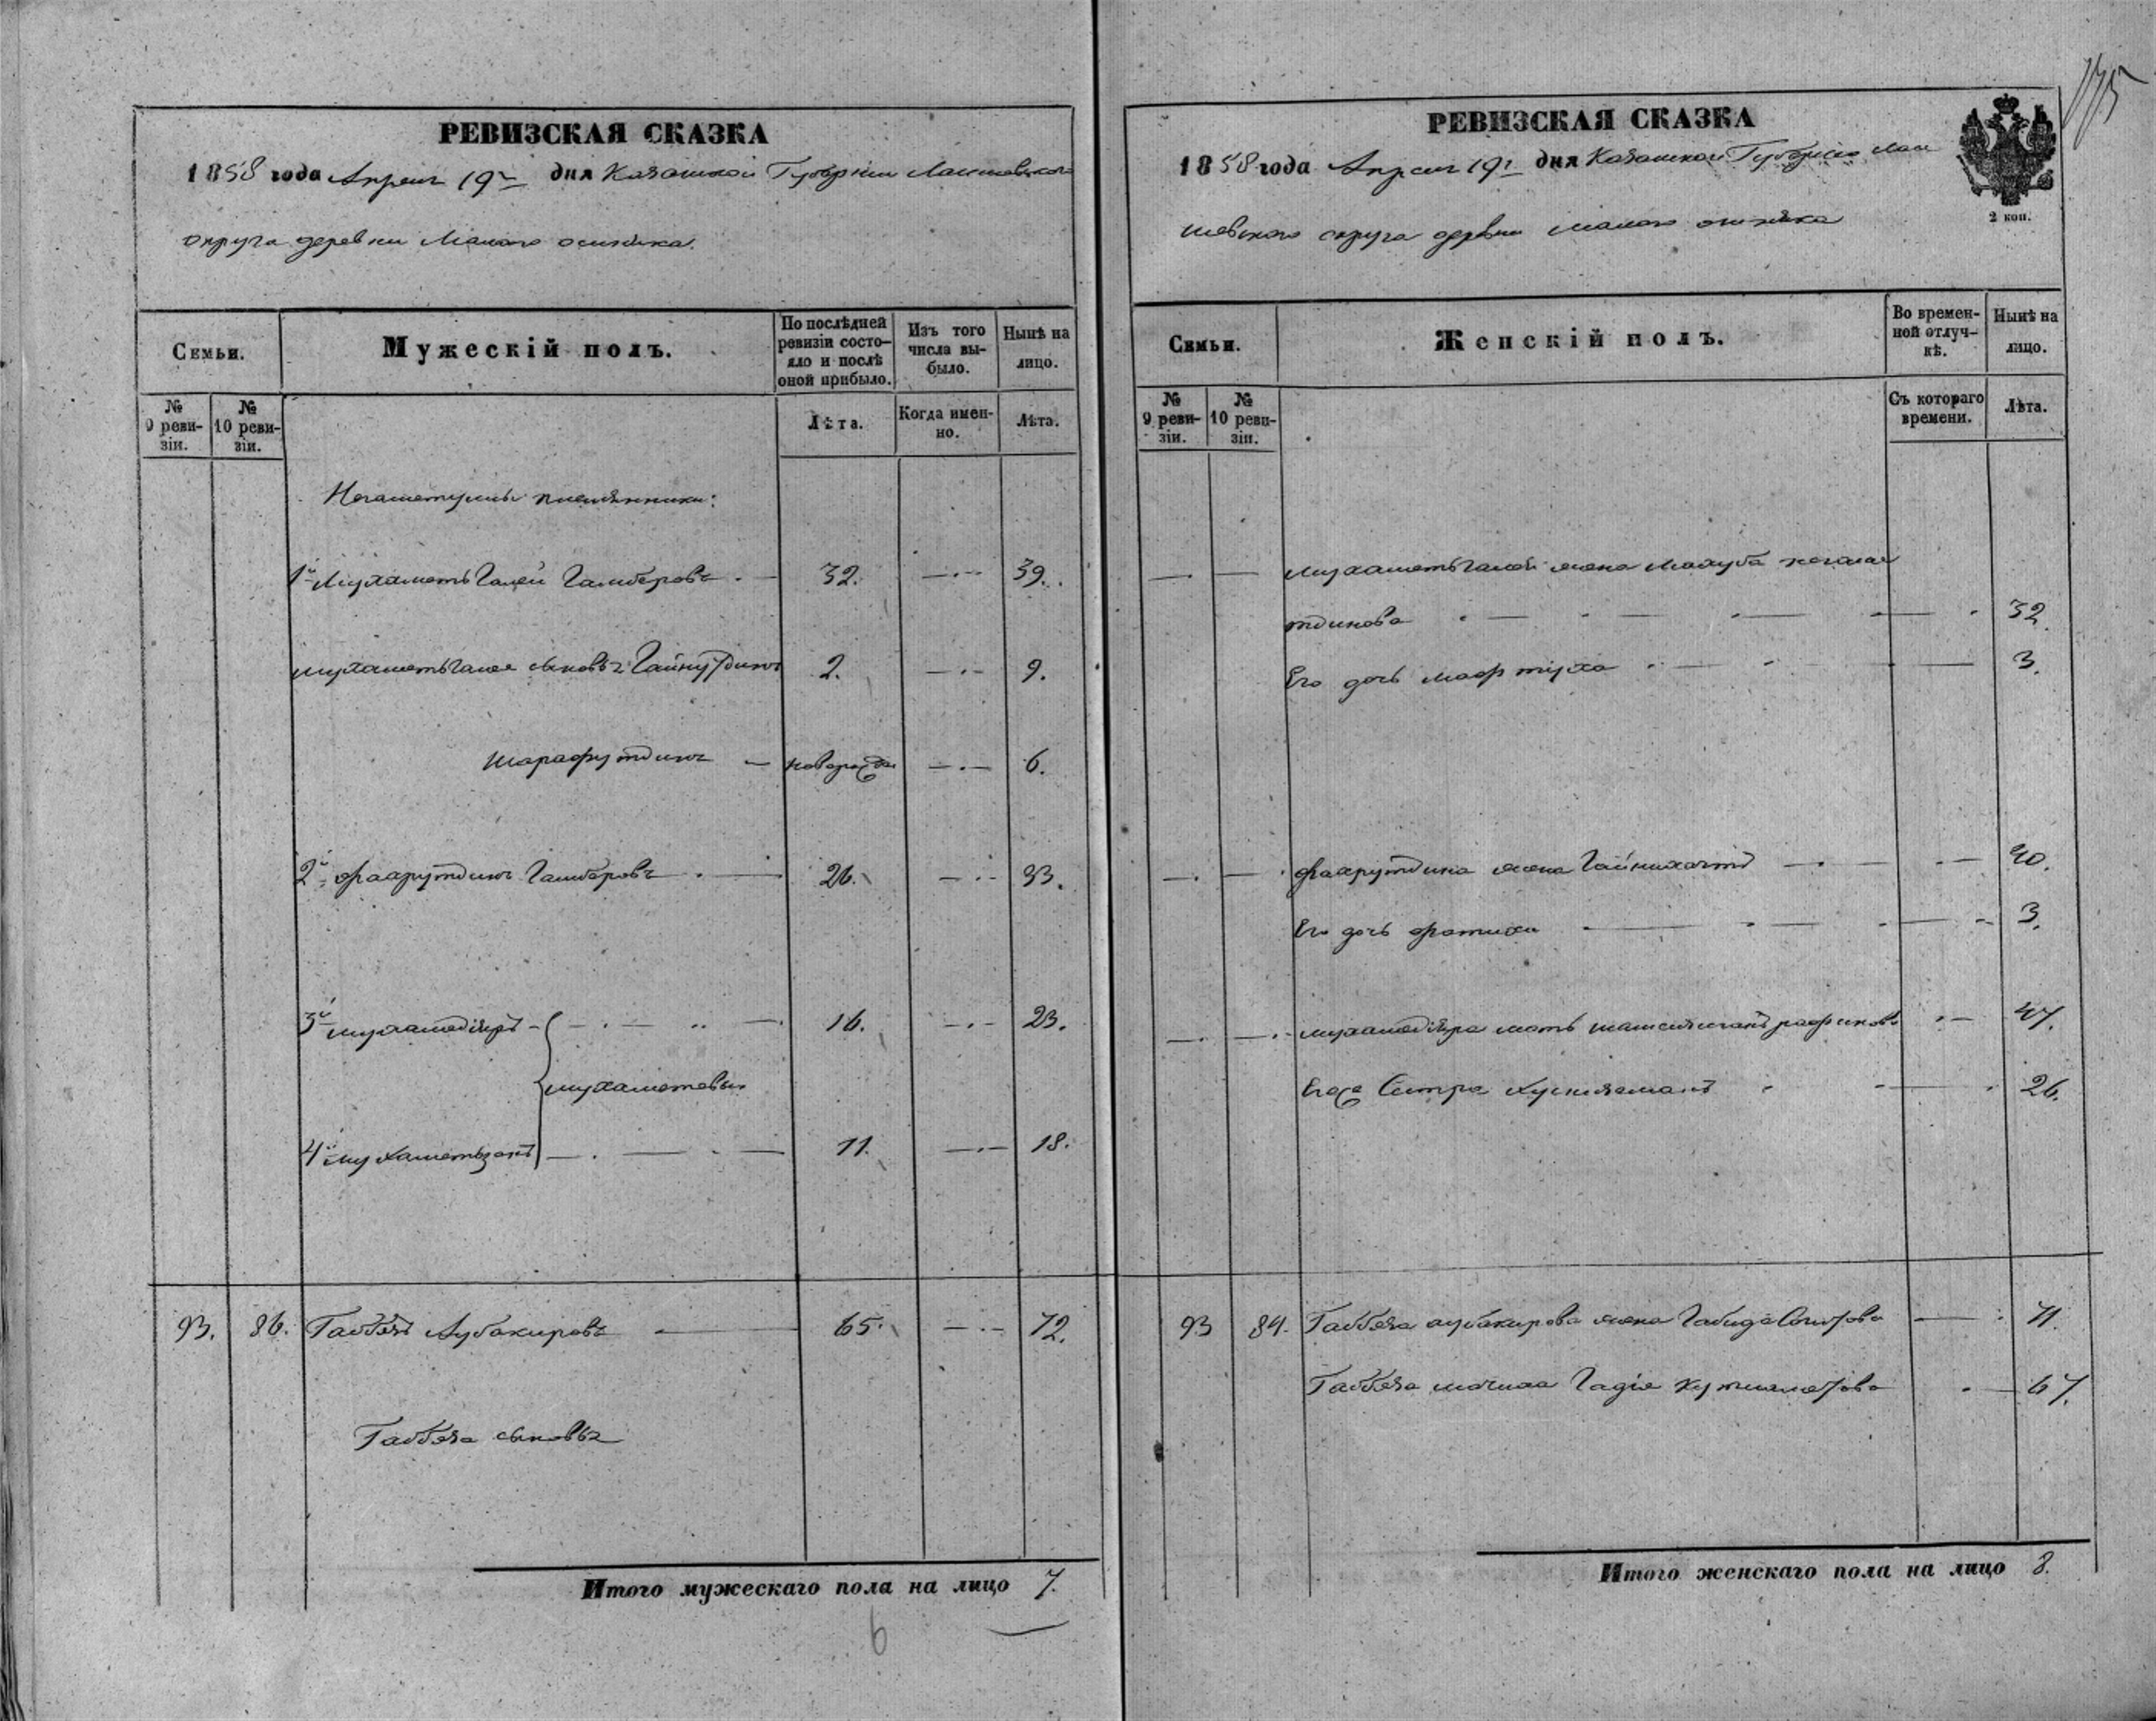 РЕВИЗСКАЯ СКАЗКА
1858 года Апреля 19 дня Казанской Губернии Лаишевскаго
округа деревни Малаго
Семьи.
Мужескій полъ.
По послѣдней ревизіи состо-
яло и послѣ оной прибыло.
Изъ того числа вы-
было.
Нынѣ на лицо.
№ 9 реви-
зіи.
№ 10 реви-
зіи.
Лѣта.
Когда имен-
но.
Лѣта.
племянники:
1й Мухаметь Галей 32. 39.
мухаметьгалея сыновья Гайнутдинъ 2. 9.
шарафутдинъ новорожд 6.
2й фахрутдинъ 26. 33.
3й мухамедіяръ 16. 23.
мухаметевы
4й мухаметьзянъ 11. 18.
93. 86. Габбясъ Аубакировъ 65. 72.
Габбяса сыновья
Итого мужескаго пола на лицо 7.
6
РЕВИЗСКАЯ СКАЗКА
1858 года Апреля 19 дня Казанской Губернии Лаи
шевскаго округа деревни малаго
2 коп.
175
Семьи.
Женскій полъ.
Во времен-
ной отлуч-
кѣ.
Нынѣ на лицо.
№ 9 реви-
зіи.
№ 10 реви-
зіи.
Съ котораго времени.
Лѣта.
мухаметьгалея жена Махуба
тдинова 32.
Его дочь 3.
фахрутдина жена 30.
Его дочь 3.
мухамедіяра мать 47.
Его Сестра 26.
93 84. Габбяса аубакирова жена Габида 71.
Габбяса мачиха Гадія 67.
Итого женскаго пола на лицо 8.